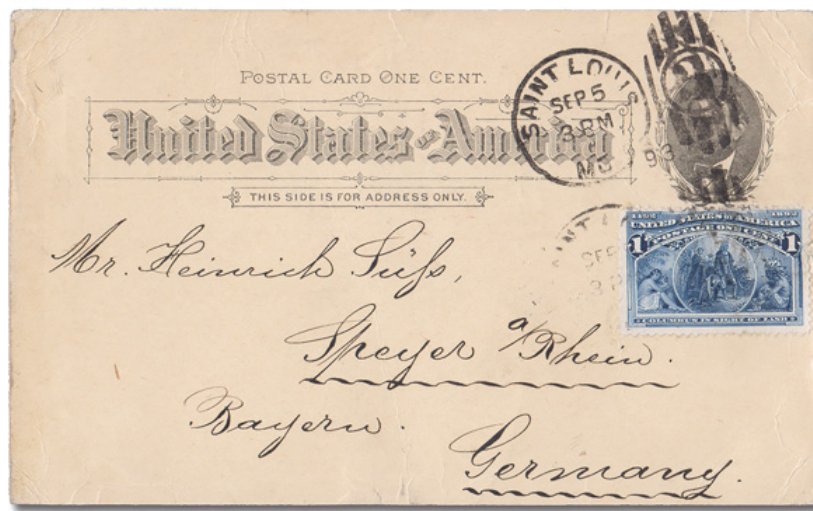 POSTAL CARD ONE CENT.
United States of America
THIS SIDE IS FOR ADDRESS ONLY.
SAINT LOUIS
SEP 5
3 PM
93
MO
1492 1892
UNITED STATES OF AMERICA
POSTAGE ONE CENT
1 1
COLUMBUS IN SIGHT OF LAND
SEP
Mr. Heinrich Süß,
Speyer a/Rhein.
Bayern.
Germany.